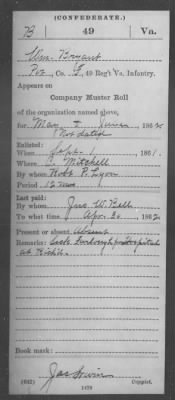 (CONFEDERATE.)
B 49 Va.
Wm. Bryant
Pvt, Co. I, 49 Reg't Va. Infantry.
Appears on
Company Muster Roll
of the organization named above,
for May & June, 1862.
Not dated
Enlisted:
When Sept. 1, 1861.
Where C. Mitchell
By whom Robt P. Lyon
Period 12 mos
Last paid:
By whom Jno W. Bell
To what time Apr. 30, 1862
Present or absent Absent
Remarks: Sick furlough from Hospital
at Rich'd.
Book mark:
Jas Irwin
(642) Copyist.